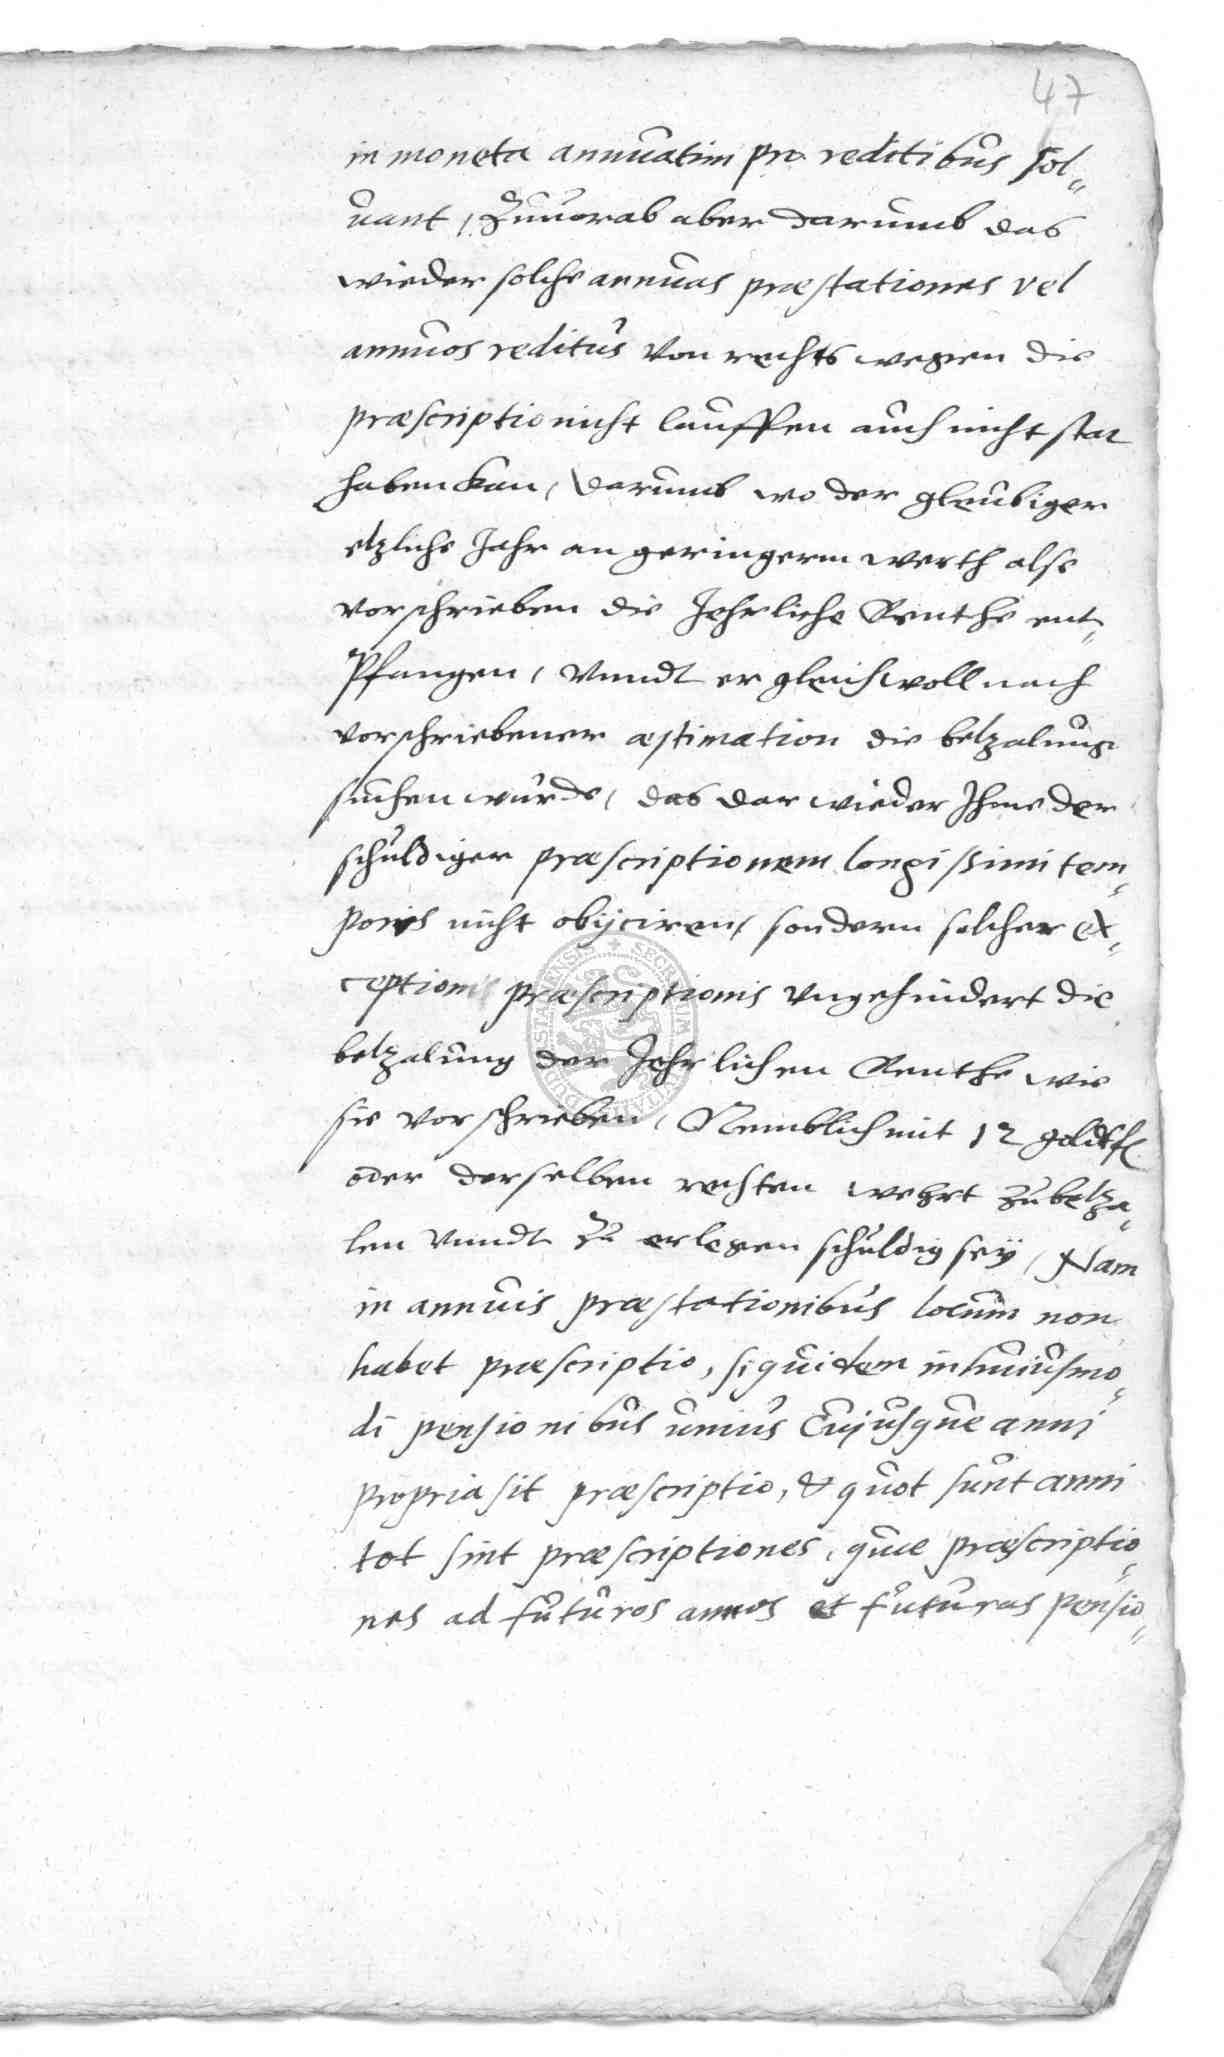 47
in moneta annuatim pro reditibus sol-
uant, Zuuorab aber darumb das
wieder solche annuas præstationes vel
annuos reditus von rechts wegen die
præscriptio nicht lauffen auch nicht stat
haben kan, darumb wo der gleubiger
etzliche Jahr an geringerm werth alse
vorschrieben die Jehrliche Renthe ent-
Pfangen, vnndt er gleichwoll nach
vorschriebener æstimation die betzalung
suchen wurde, das dar wieder Ihme der
schuldiger præscriptionem longissimi tem-
poris nicht obijciren, sondern solcher ex-
ceptionis præscriptionis vngehindert die
betzalung der Jehrlichen Renthe wie
sie vorschrieben, Nemblich mit 12 goldtfl.
oder derselben rechten wehrt zu betza-
len vnndt zu erlegen schuldig seÿ, Nam
in annuis præstationibus locum non
habet præscriptio, siquidem in huiusmo-
di pensionibus unius Cujusque anni
propria sit præscriptio, & quot sunt anni
tot sint præscriptiones, quæ præscriptio-
nes ad futuros annos et futuras pensio-
SECRETUM